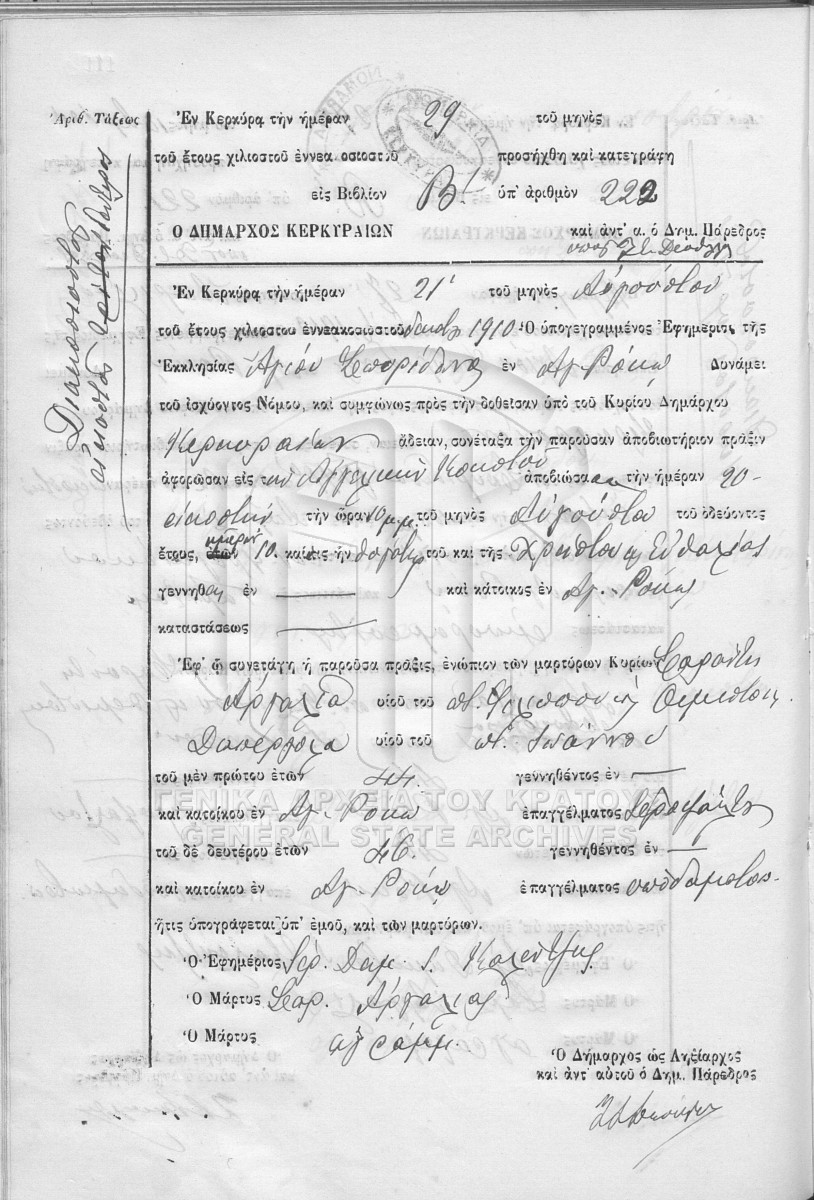 Ἀριθ. Τάξεως
Διακοσιοστὸν
εἰκοστὸν
Ἐν Κερκύρᾳ τὴν ἡμέραν 29 τοῦ μηνὸς
τοῦ ἔτους χιλιοστοῦ ἐννεα οσιοστοῦ προσήχθη καὶ κατεγράφη
εἰς Βιβλίον Β! ὑπ' ἀριθμὸν 222
Ο ΔΗΜΑΡΧΟΣ ΚΕΡΚΥΡΑΙΩΝ καὶ ἀντ' α. ὁ Δημ. Πάρεδρος
Ἐν Κερκύρᾳ τὴν ἡμέραν 21 τοῦ μηνὸς Αὐγούστου
τοῦ ἔτους χιλιοστοῦ ἐννεακοσιοστοῦ 1910 Ὁ ὑπογεγραμμένος Ἐφημέριος τῆς
Ἐκκλησίας Ἁγίου Σπυρίδωνος ἐν Ἁγ. Ρόκῳ Δυνάμει
τοῦ ἰσχύοντος Νόμου, καὶ συμφώνως πρὸς τὴν δοθεῖσαν ὑπὸ τοῦ Κυρίου Δημάρχου
Κερκυραίων ἄδειαν, συνέταξα τὴν παροῦσαν ἀποβιωτήριον πρᾶξιν
ἀφορῶσαν εἰς τὴν Ἀγγελικὴν ἀποβιώσασαν τὴν ἡμέραν 20
εἰκοστὴν τὴν ὥραν 10 μ.μ. τοῦ μηνὸς Αὐγούστου τοῦ ὁδεύοντος
ἔτους, ἐτῶν ἡμερῶν 10. καὶ εἰς ἣν τοῦ καὶ τῆς Χρήστου κ Εὐθαλίας
γεννηθ ἐν καὶ κάτοικος ἐν Ἁγ. Ρόκῳ
καταστάσεως
Ἐφ' ᾧ συνετάγη ἡ παροῦσα πρᾶξις, ἐνώπιον τῶν μαρτύρων Κυρίων Σαράντη
Ἀργαλιᾶ υἱοῦ τοῦ ποτ. Φιλίππου κ
υἱοῦ τοῦ ποτ. Ἰωάννου
τοῦ μὲν πρώτου ἐτῶν 44. γεννηθέντος ἐν
καὶ κατοίκου ἐν Ἁγ. Ρόκῳ ἐπαγγέλματος ἱεροψάλτου
τοῦ δὲ δευτέρου ἐτῶν 46. γεννηθέντος ἐν
καὶ κατοίκου ἐν Ἁγ. Ρόκῳ ἐπαγγέλματος
ἥτις ὑπογράφεται ὑπ' ἐμοῦ, καὶ τῶν μαρτύρων.
Ὁ Ἐφημέριος Ἱερ. Δαμ.
Ὁ Μάρτυς Σαρ. Ἀργαλιᾶς
Ὁ Μάρτυς ἀγράμμ.
Ὁ Δήμαρχος ὡς Ληξίαρχος
καὶ ἀντ' αὐτοῦ ὁ Δημ. Πάρεδρος
ΓΕΝΙΚΑ ΑΡΧΕΙΑ ΤΟΥ ΚΡΑΤΟΥΣ
GENERAL STATE ARCHIVES